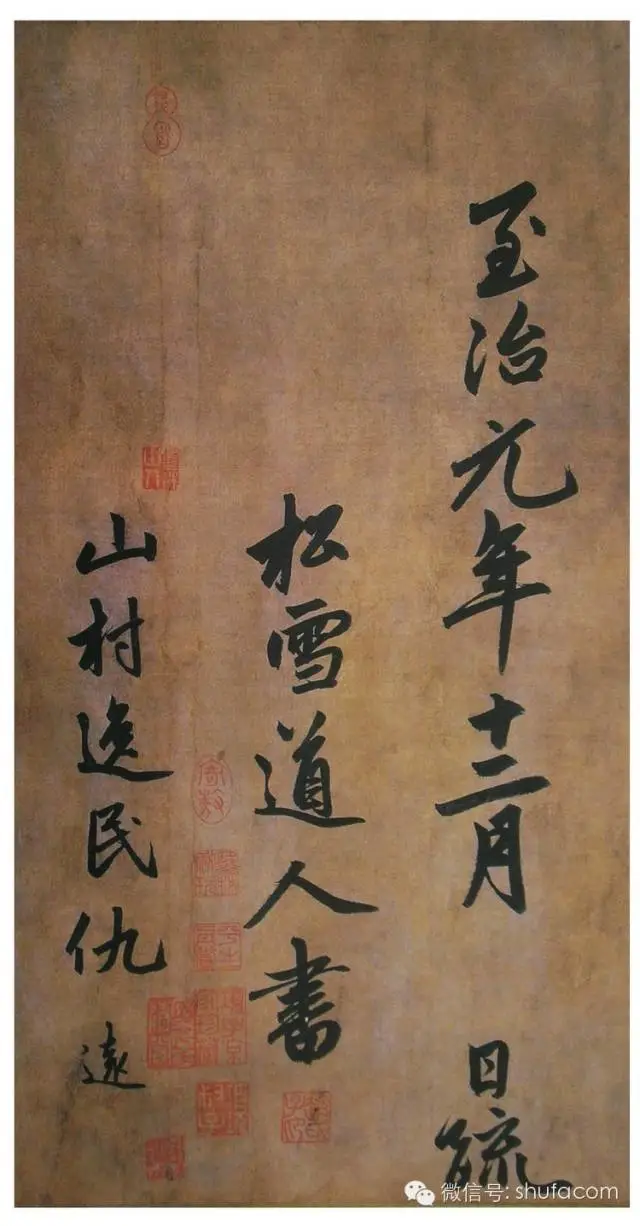 至治元年十二月 日疏
松雪道人書
山村逸民仇 遠
微信号: shufacom